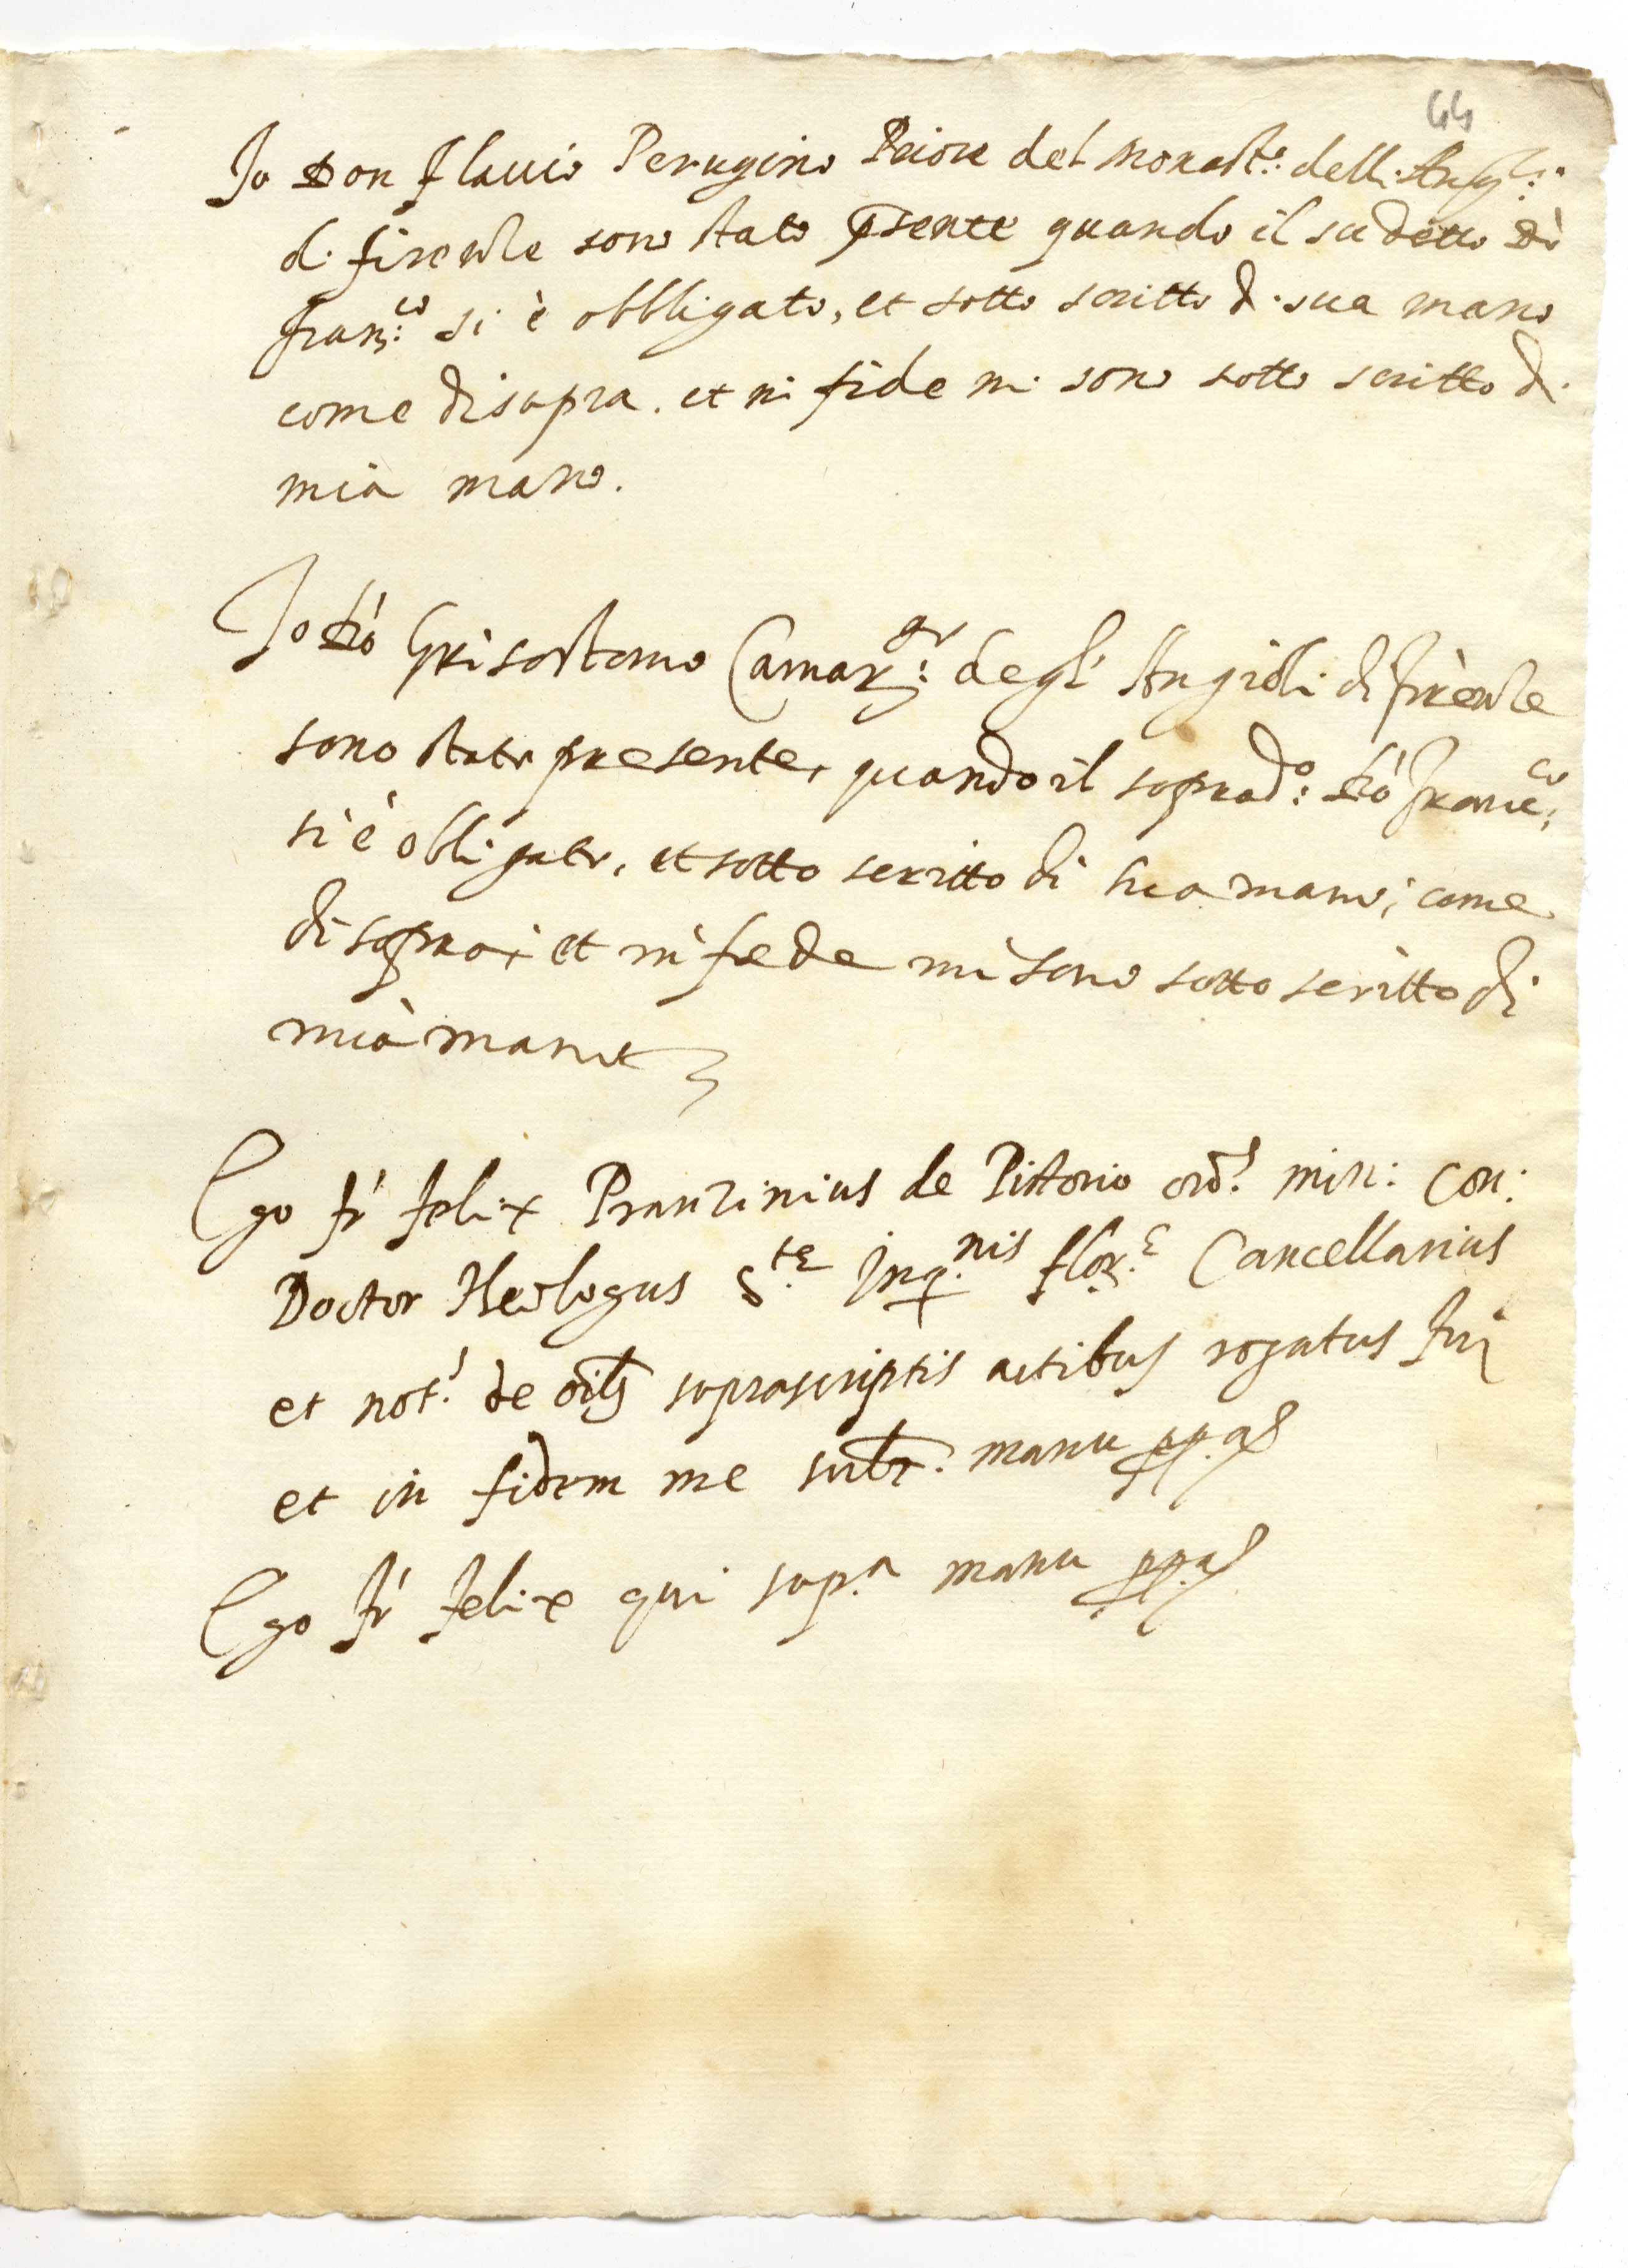 44
Io Don Flavio Perugino Priore del Monast.o delli Ang.li
di firenze sono stato p̃sente quando il sudetto Dõ
Fran.co si è obbligato, et sotto scritto di sua mano
come disopra. et in fide mi sono sotto scritto di
mia mano.
Io Dõ Grisostomo Camar.go degl' Angioli di firenze
sono stato presente, quando il soprad.o Dõ Franc.co
si è obligato, et sotto scritto di sua mano, come
di sopra; et in fede mi sono sotto scritto di
mia mano
Ego fr' felix Pranzinius de Pistorio ord.s min: Con:
Doctor Theologus S.te Inq.nis flor.e Cancellarius
et not.s de oĩbs suprascriptis actibus rogatus fui
et in fidem me subs. manu pp.a
Ego fr' felix qui sup.a manu pp.a